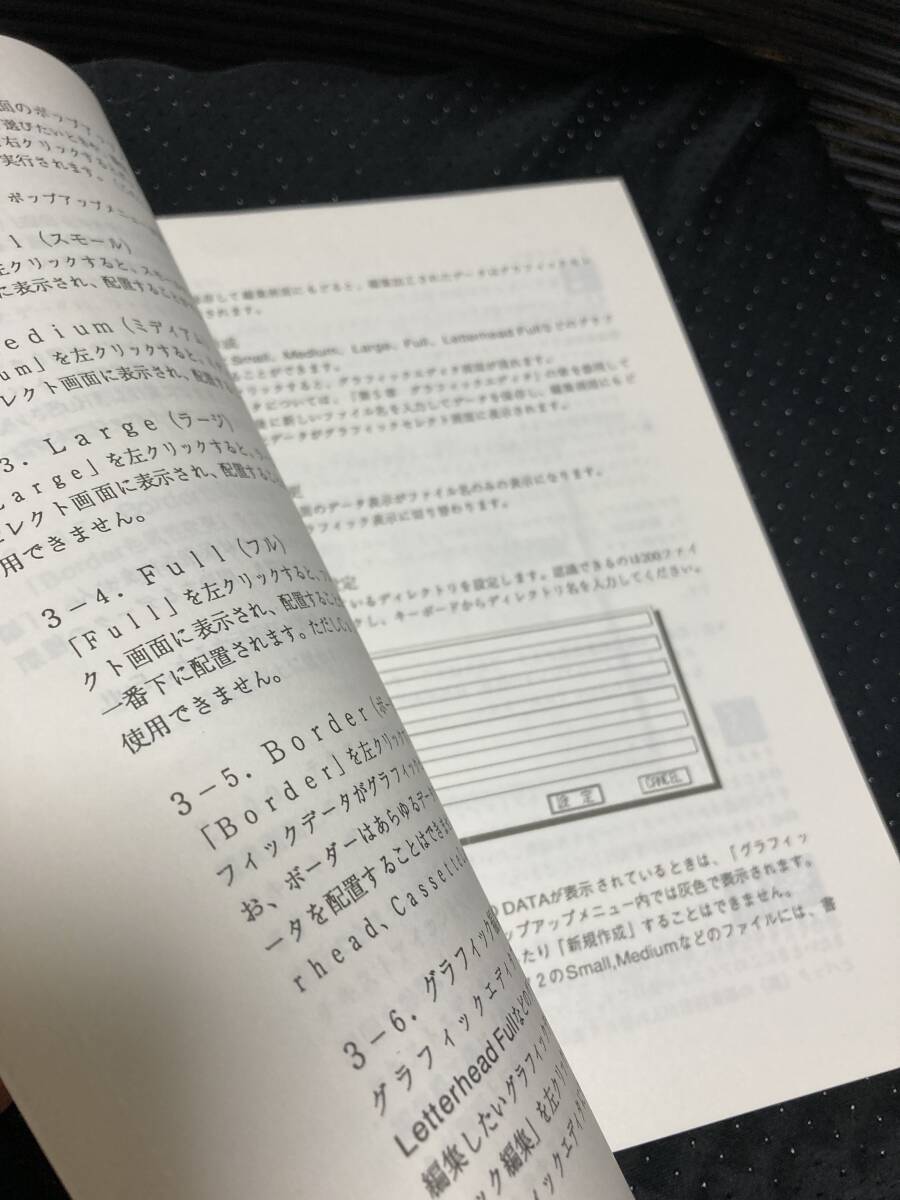 面のポップアッ
選びたいときや
右クリックする
実行されます。
ポップアップメニュー
l（スモール）
左クリックすると、スモー
に表示され、配置することが
edium（ミディアム
um」を左クリックすると、
レクト画面に表示され、配置する
3．Large（ラージ）
Large」を左クリックすると、ラ
セレクト画面に表示され、配置するこ
用できません。
3－4．Full（フル）
「Full」を左クリックすると、フ
クト画面に表示され、配置することが
一番下に配置されます。ただし、
使用できません。
3－5．Border（ボー
「Border」を左クリック
フィックデータがグラフィック
お、ボーダーはあらゆるデー
ータを配置することはできま
rhead、Cassette
3－6．グラフィック編
グラフィックエディタ
Letterhead Fullなどの
編集したいグラフィック
ック編集」を左クリッ
ィックエディタ
存して編集画面にもどると、編集加工されたデータはグラフィックセレ
されます。
成
Small、Medium、Large、Full、Letterhead Fullなどのグラフ
ることができます。
リックすると、グラフィックエディタ画面が現れます。
タについては、「第5章　グラフィックエディタ」の章を参照して
後に新しいファイル名を入力してデータを保存し、編集画面にもど
たデータがグラフィックセレクト画面に表示されます。
更
面のデータ表示がファイル名のみの表示になります。
ラフィック表示に切り替わります。
設定
いるディレクトリを設定します。認識できるのは200ファイ
クし、キーボードからディレクトリ名を入力してください。
設 定
CANCEL
DATAが表示されているときは、「グラフィッ
ップアップメニュー内では灰色で表示されます。
たり「新規作成」することはできません。
2のSmall,Mediumなどのファイルには、書